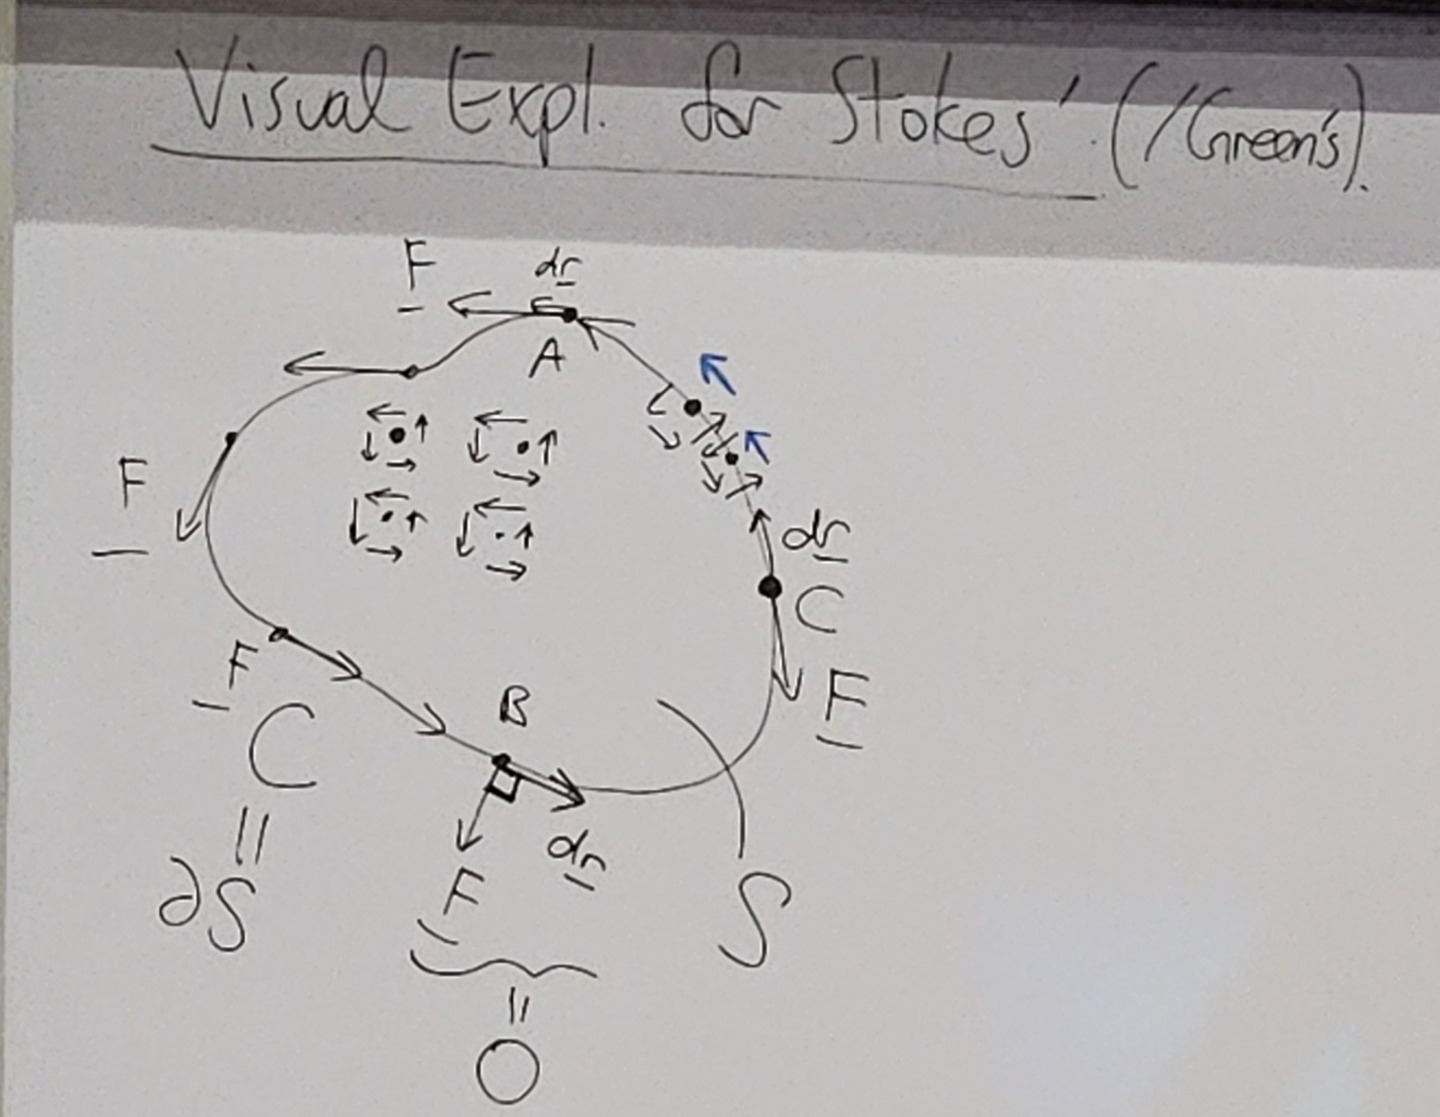 Visual Expl. for Stokes' (/Green's).
F dr
A
F
dr
C
F
F
B
C
=
∂S
dr
F
S
=
0